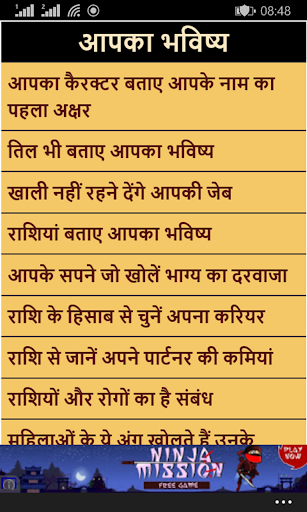 1 2 08:48
आपका भविष्य
आपका कैरक्टर बताए आपके नाम का
पहला अक्षर
तिल भी बताए आपका भविष्य
खाली नहीं रहने देंगे आपकी जेब
राशियां बताए आपका भविष्य
आपके सपने जो खोलें भाग्य का दरवाजा
राशि के हिसाब से चुनें अपना करियर
राशि से जानें अपने पार्टनर की कमियां
राशियों और रोगों का है संबंध
महिलाओं के ये अंग खोलते हैं उनके
NINJA
MISSION
FREE GAME
PLAY
NOW